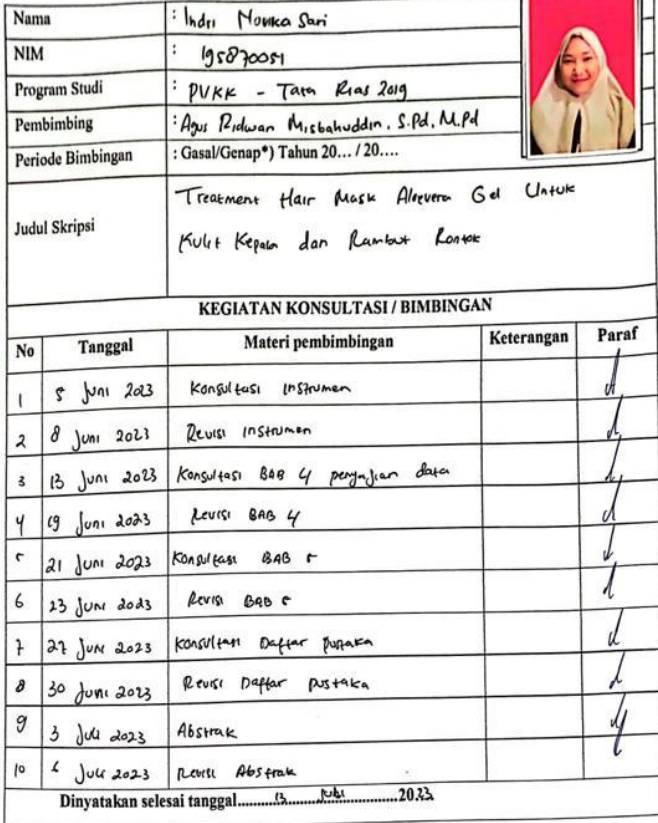 Nama : Indri Novika Sari
NIM : 195870051
Program Studi : PVKK - Tata Rias 2019
Pembimbing : Agus Ridwan Misbahuddin, S.Pd, M.Pd
Periode Bimbingan : Gasal/Genap*) Tahun 20... / 20....
Judul Skripsi Treatment Hair Mask Aloevera Gel Untuk
Kulit Kepala dan Rambut Rontok
KEGIATAN KONSULTASI / BIMBINGAN
No Tanggal Materi pembimbingan Keterangan Paraf
1 5 Juni 2023 Konsultasi Instrumen
2 8 Juni 2023 Revisi Instrumen
3 13 Juni 2023 Konsultasi BAB 4 penyajian data
4 19 Juni 2023 Revisi BAB 4
5 21 Juni 2023 Konsultasi BAB 5
6 23 Juni 2023 Revisi BAB 5
7 27 Juni 2023 Konsultasi Daftar pustaka
8 30 Juni 2023 Revisi Daftar pustaka
9 3 Juli 2023 Abstrak
10 Juli 2023 Revisi Abstrak
Dinyatakan selesai tanggal............13.......Juli...............2023